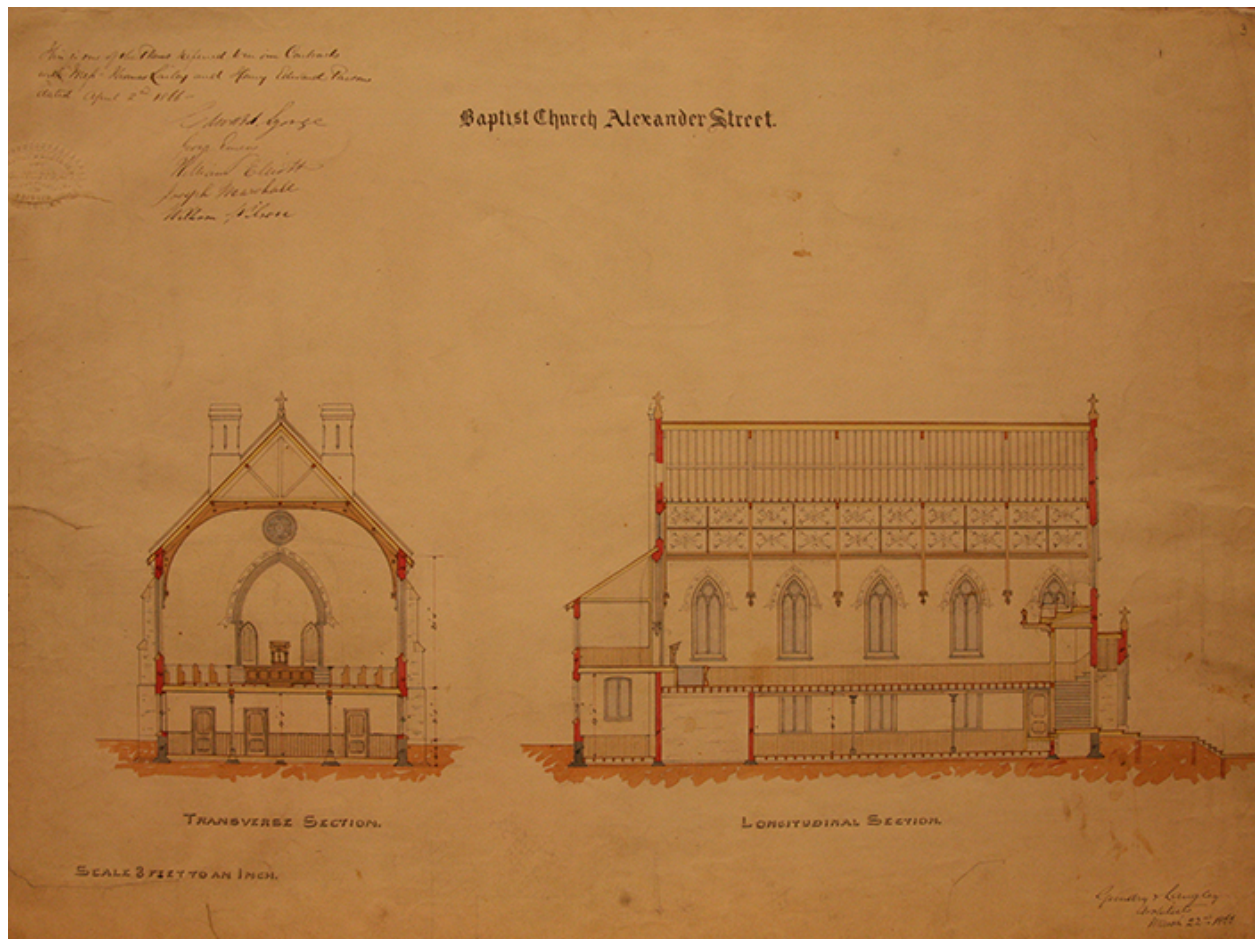 This is one of the Plans referred to in our Contracts
with Messrs Thomas and Henry Edward Parsons
dated April 2nd 1866
Edward
William Elliott
Joseph Marshall
William
Baptist Church Alexander Street.
TRANSVERSE SECTION.
LONGITUDINAL SECTION.
SCALE 8 FEET TO AN INCH.
Grundy & Langley
Architects
March 22nd 1866